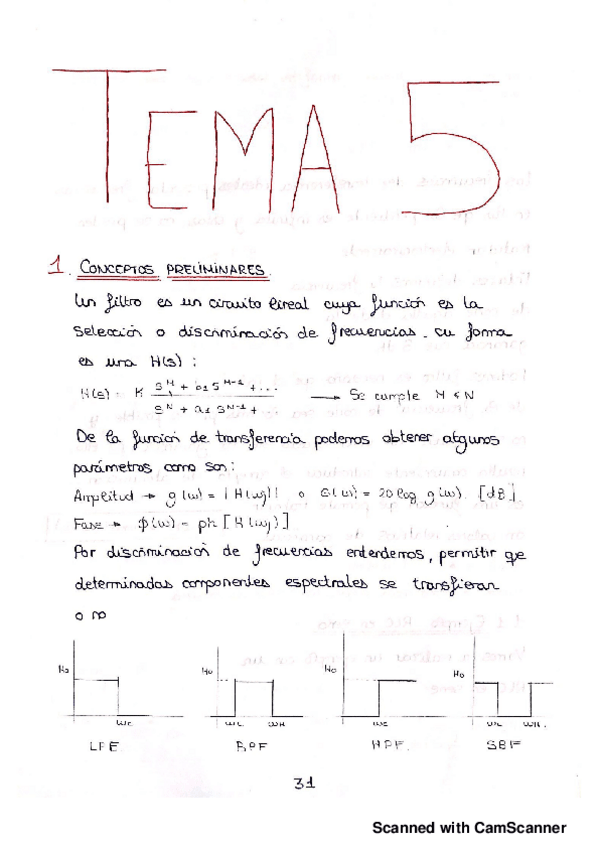 TEMA 5
1. CONCEPTOS PRELIMINARES.
Un filtro es un circuito lineal cuya función es la
selección o discriminación de frecuencias. su forma
es una H(s) :
H(s) = K (s^M + b1 s^M-1 + ...) / (s^N + a1 s^N-1 + ...) → Se cumple M ≤ N
De la función de transferencia podemos obtener algunos
parámetros como son:
Amplitud → g(ω) = |H(ωj)| o G(ω) = 20 log g(ω) [dB]
Fase → φ(ω) = ph [H(ωj)]
Por discriminación de frecuencias entendemos, permitir qe
determinadas componentes espectrales se transfieran
o no
Ho Ho Ho Ho
ωc ωL ωH ωc ωL ωH
LPF BPF HPF. SBF
31
Scanned with CamScanner